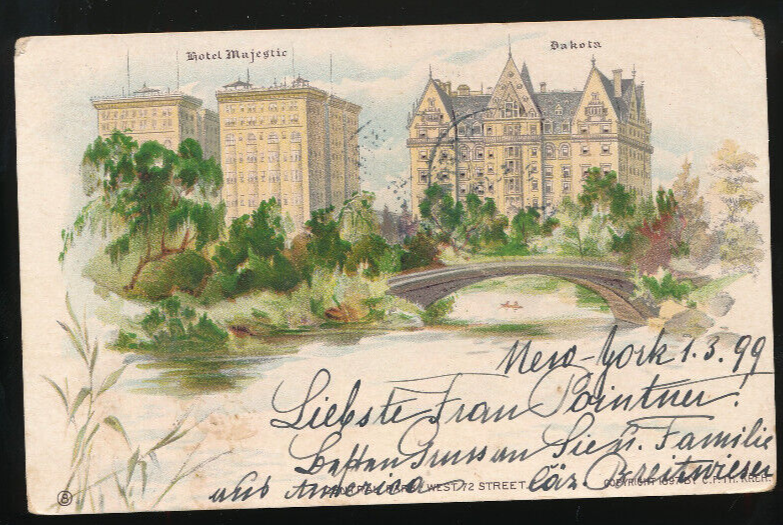 Hotel Majestic
Dakota
New-York 1.3.99
Liebste Frau Pointner!
Besten Gruss an Sie u. Familie
aus America
CENTRAL PARK, WEST, 72 STREET.
COPYRIGHT 1897 BY C. F. TH. KREH.
Breitwieser
8